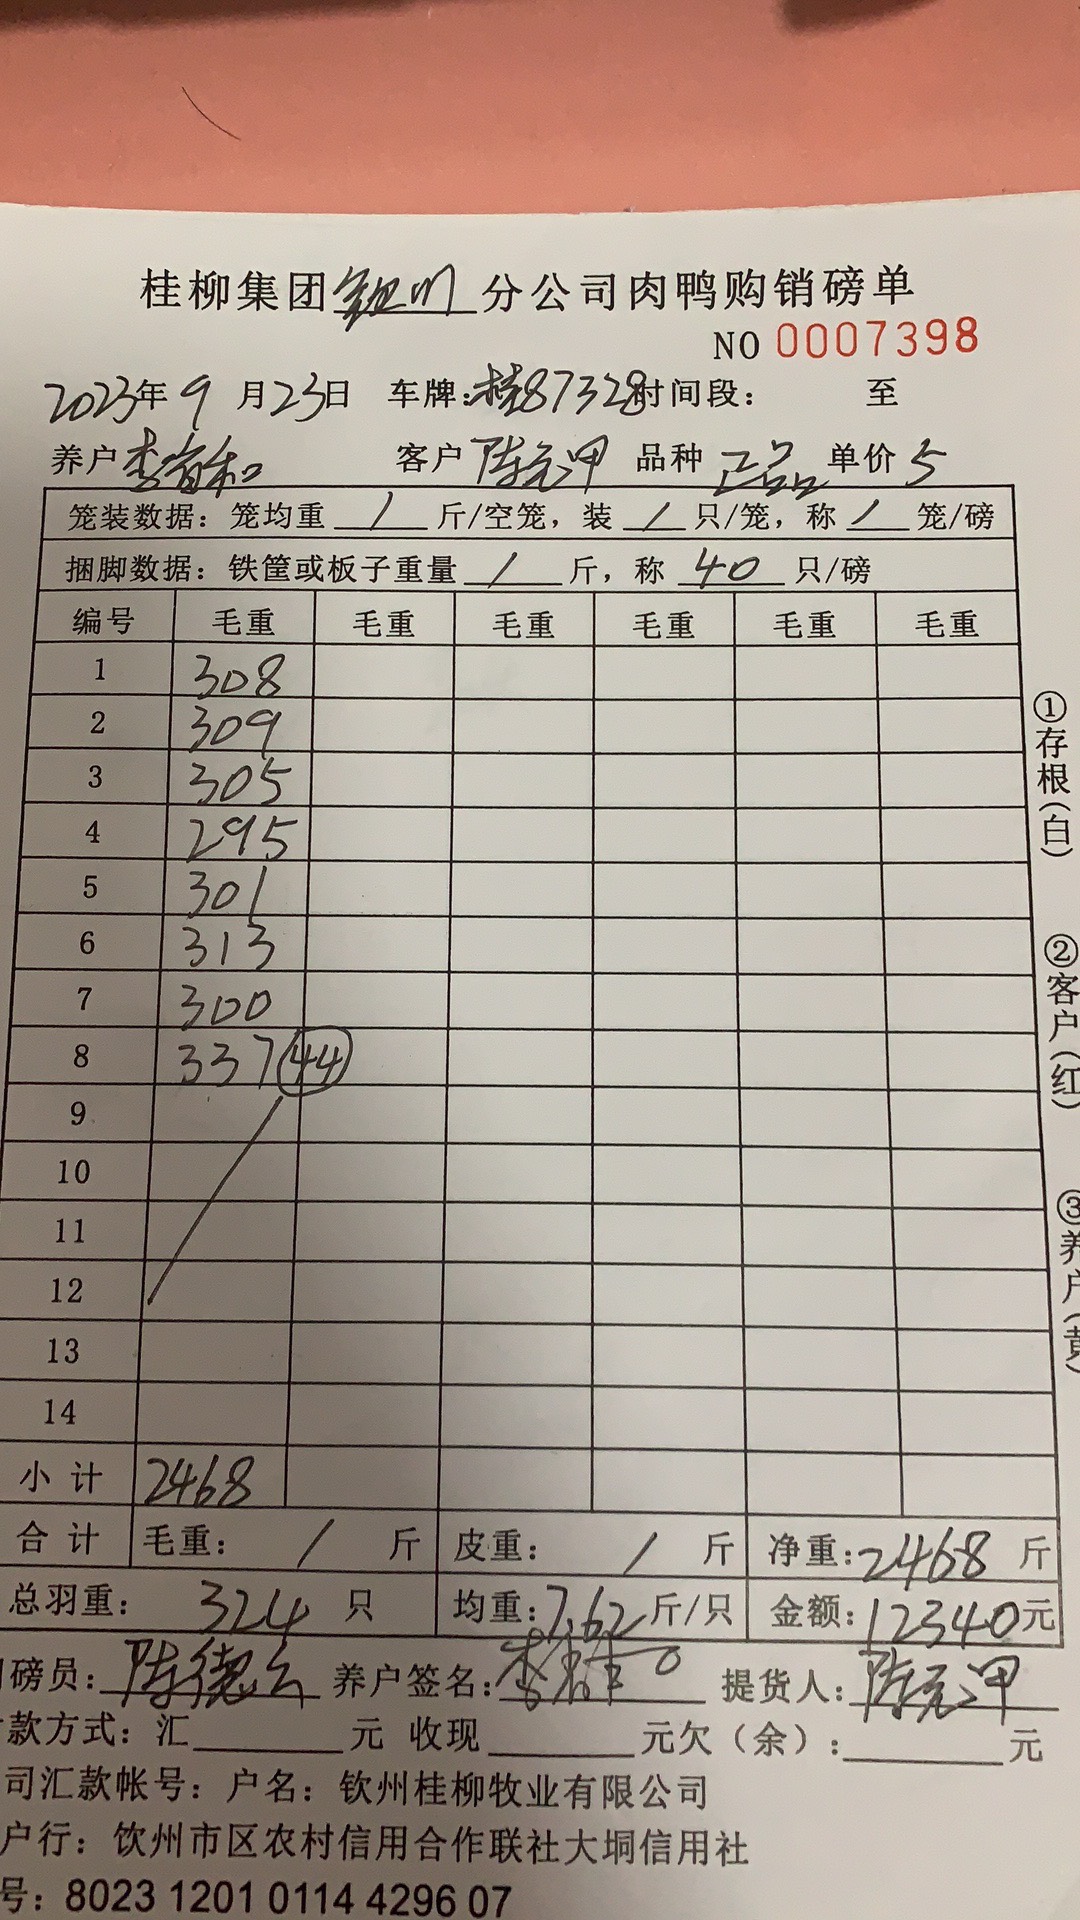 桂柳集团钦州分公司肉鸭购销磅单
NO 0007398
2023年9月23日 车牌:桂87328时间段: 至
养户李 和 客户陈元溜 品种正品 单价5
笼装数据:笼均重 / 斤/空笼,装 / 只/笼,称 / 笼/磅
捆脚数据:铁筐或板子重量 / 斤,称 40 只/磅
编号 毛重 毛重 毛重 毛重 毛重 毛重
1 308
2 309
3 305
4 295
5 301
6 313
7 300
8 337 44
9
10
11
12
13
14
小计 2468
合计 毛重: / 斤 皮重: / 斤 净重:2468 斤
总羽重: 324 只 均重:7.62斤/只 金额:12340元
磅员:陈德 养户签名:李 提货人:陈元
款方式:汇 元 收现 元欠(余): 元
司汇款帐号:户名:钦州桂柳牧业有限公司
户行:饮州市区农村信用合作联社大垌信用社
号:8023 1201 0114 4296 07
①存根(白)
②客户(红)
③养户(黄)